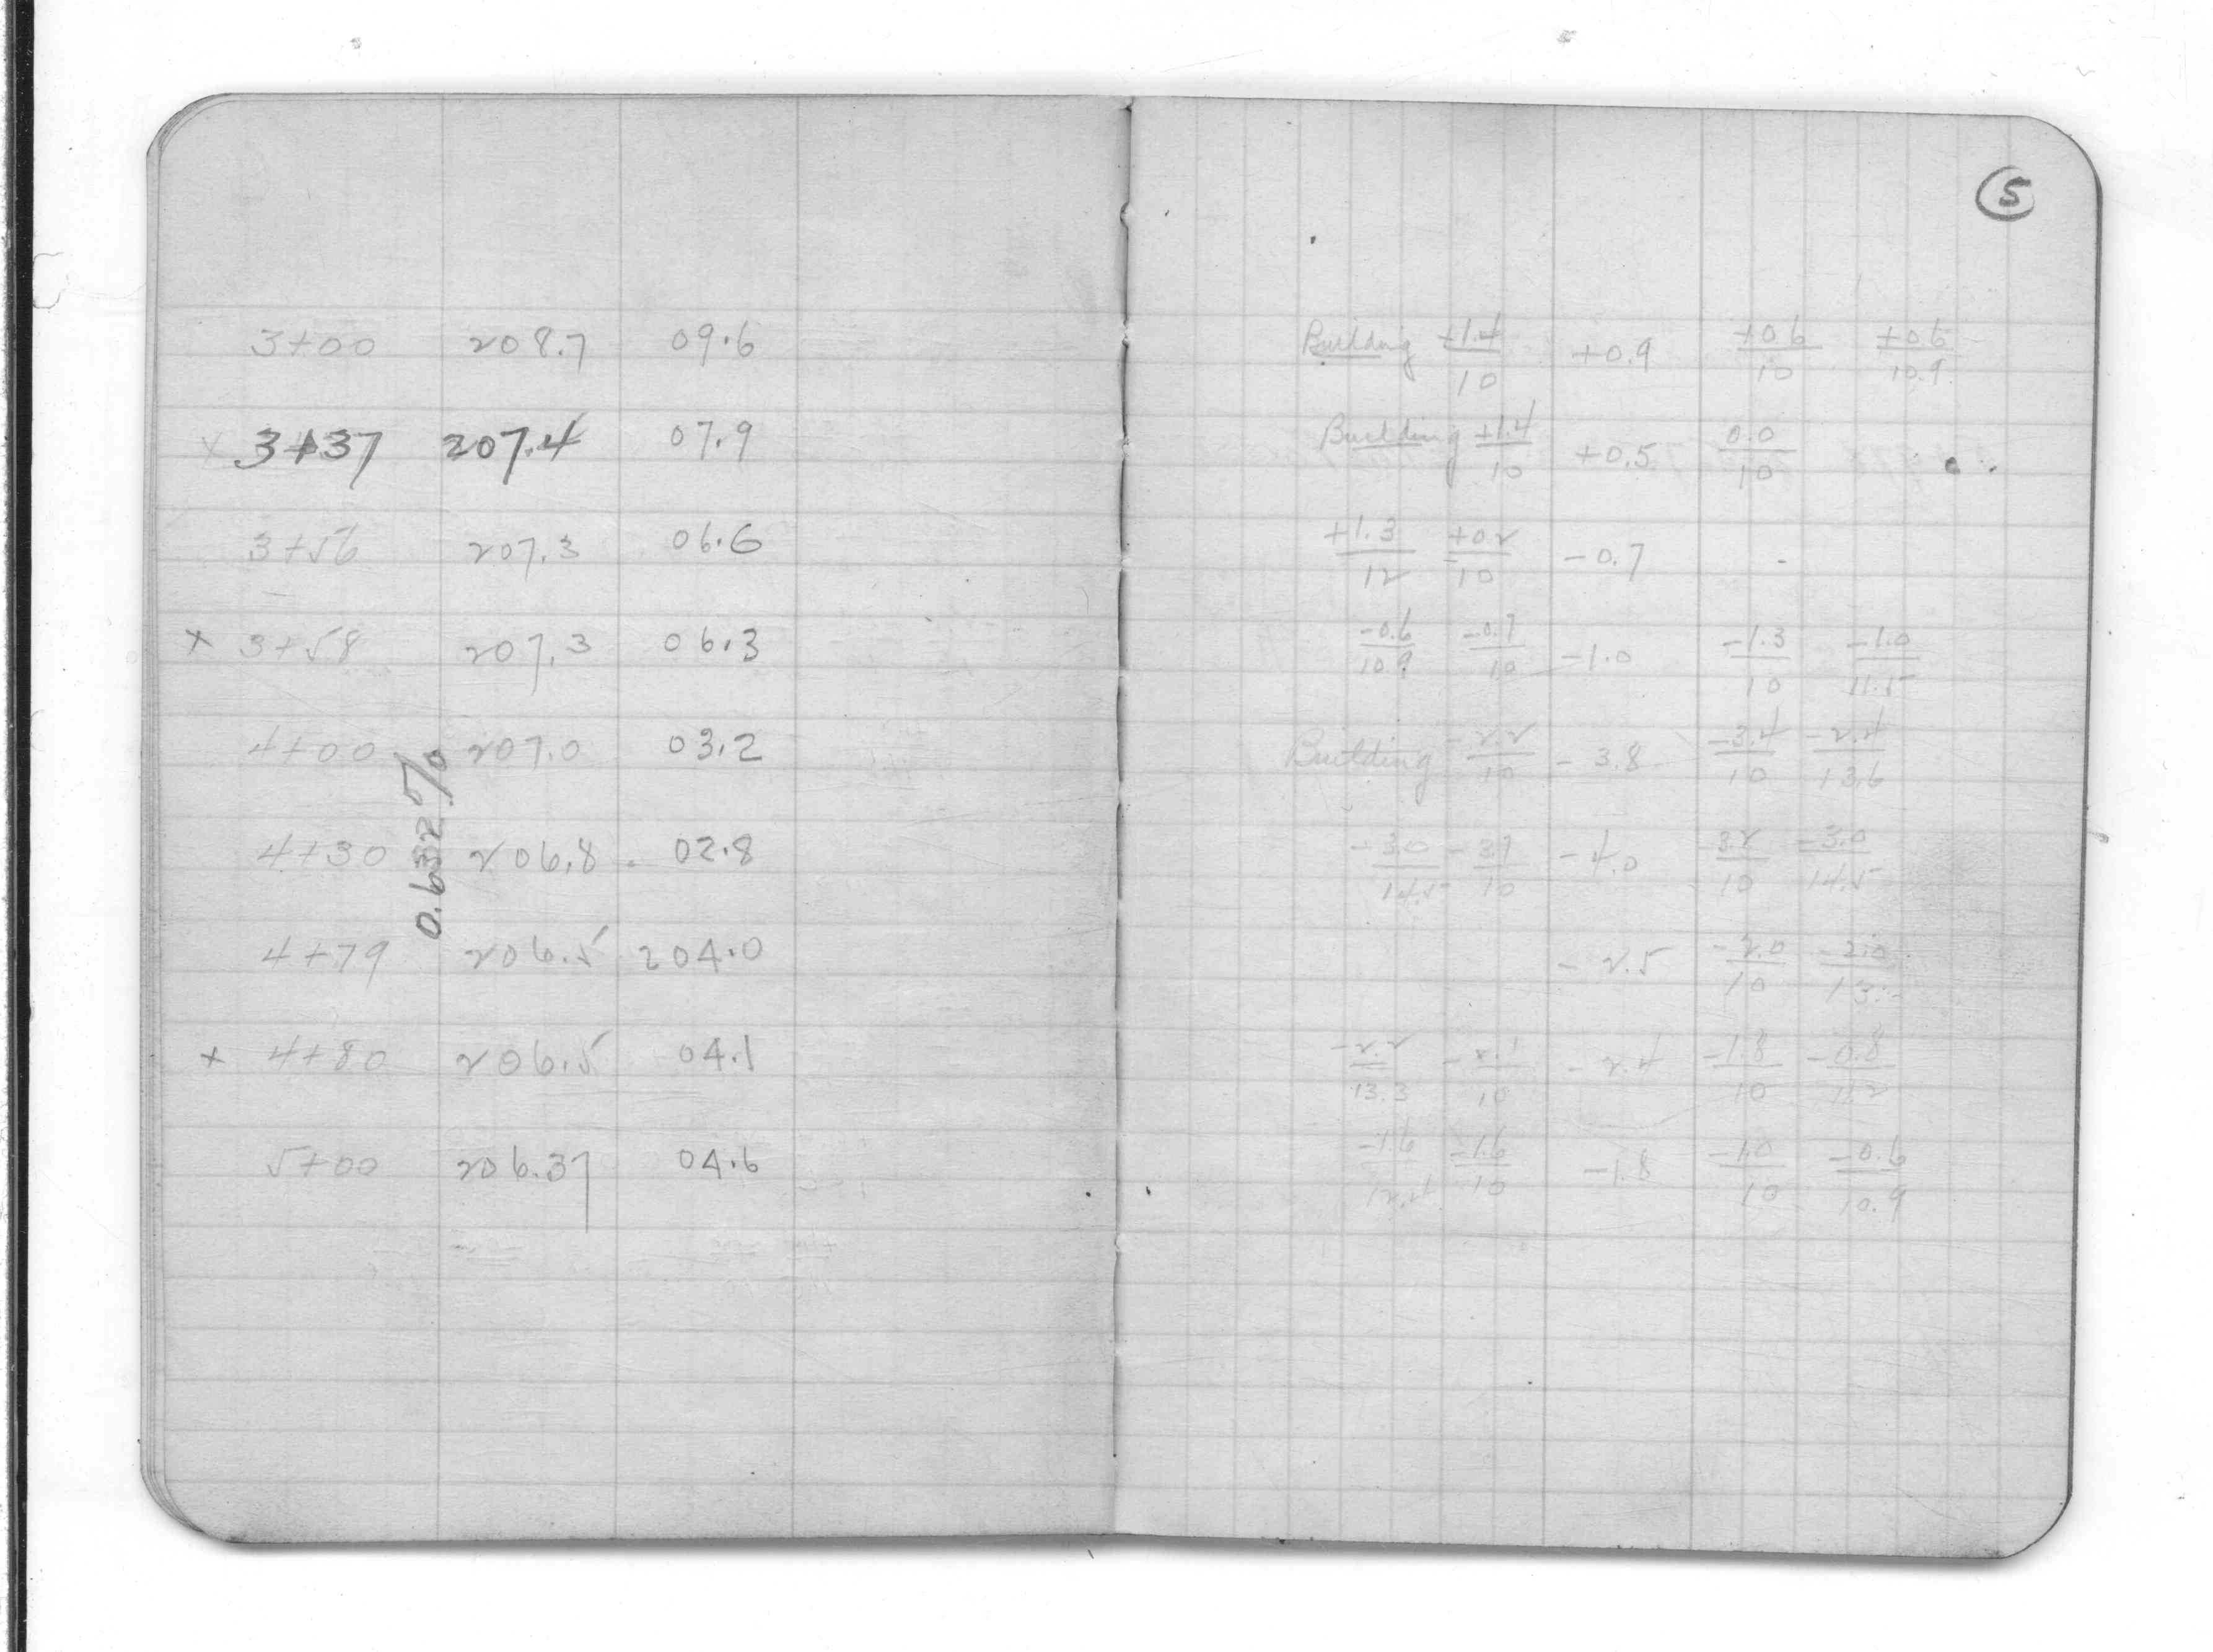 5
3+00 208.7 09.6 Building +1.4/10 +0.9 +0.6/10 +0.6/10.9
x 3+37 207.4 07.9 Building +1.4/10 +0.5 0.0/10
3+56 207.3 06.6 +1.3/12 +0.2/10 -0.7 -
x 3+58 207.3 06.3 -0.6/10.9 -0.7/10 -1.0 -1.3/10 -1.0/11.5
4+00 207.0 03.2 Building -2.2/10 -3.8 -3.4/10 -2.4/13.6
0.632%
4+30 206.8 02.8 -3.0/14.5 -3.9/10 -4.0 -3.2/10 -3.0/14.5
4+79 206.5 204.0 -2.5 -2.0/10 -2.0/13
x 4+80 206.5 04.1 -2.2/13.3 -2.1/10 -2.4 -1.8/10 -0.8/11.2
5+00 206.37 04.6 -1.6/12.4 -1.6/10 -1.8 -1.0/10 -0.6/10.9